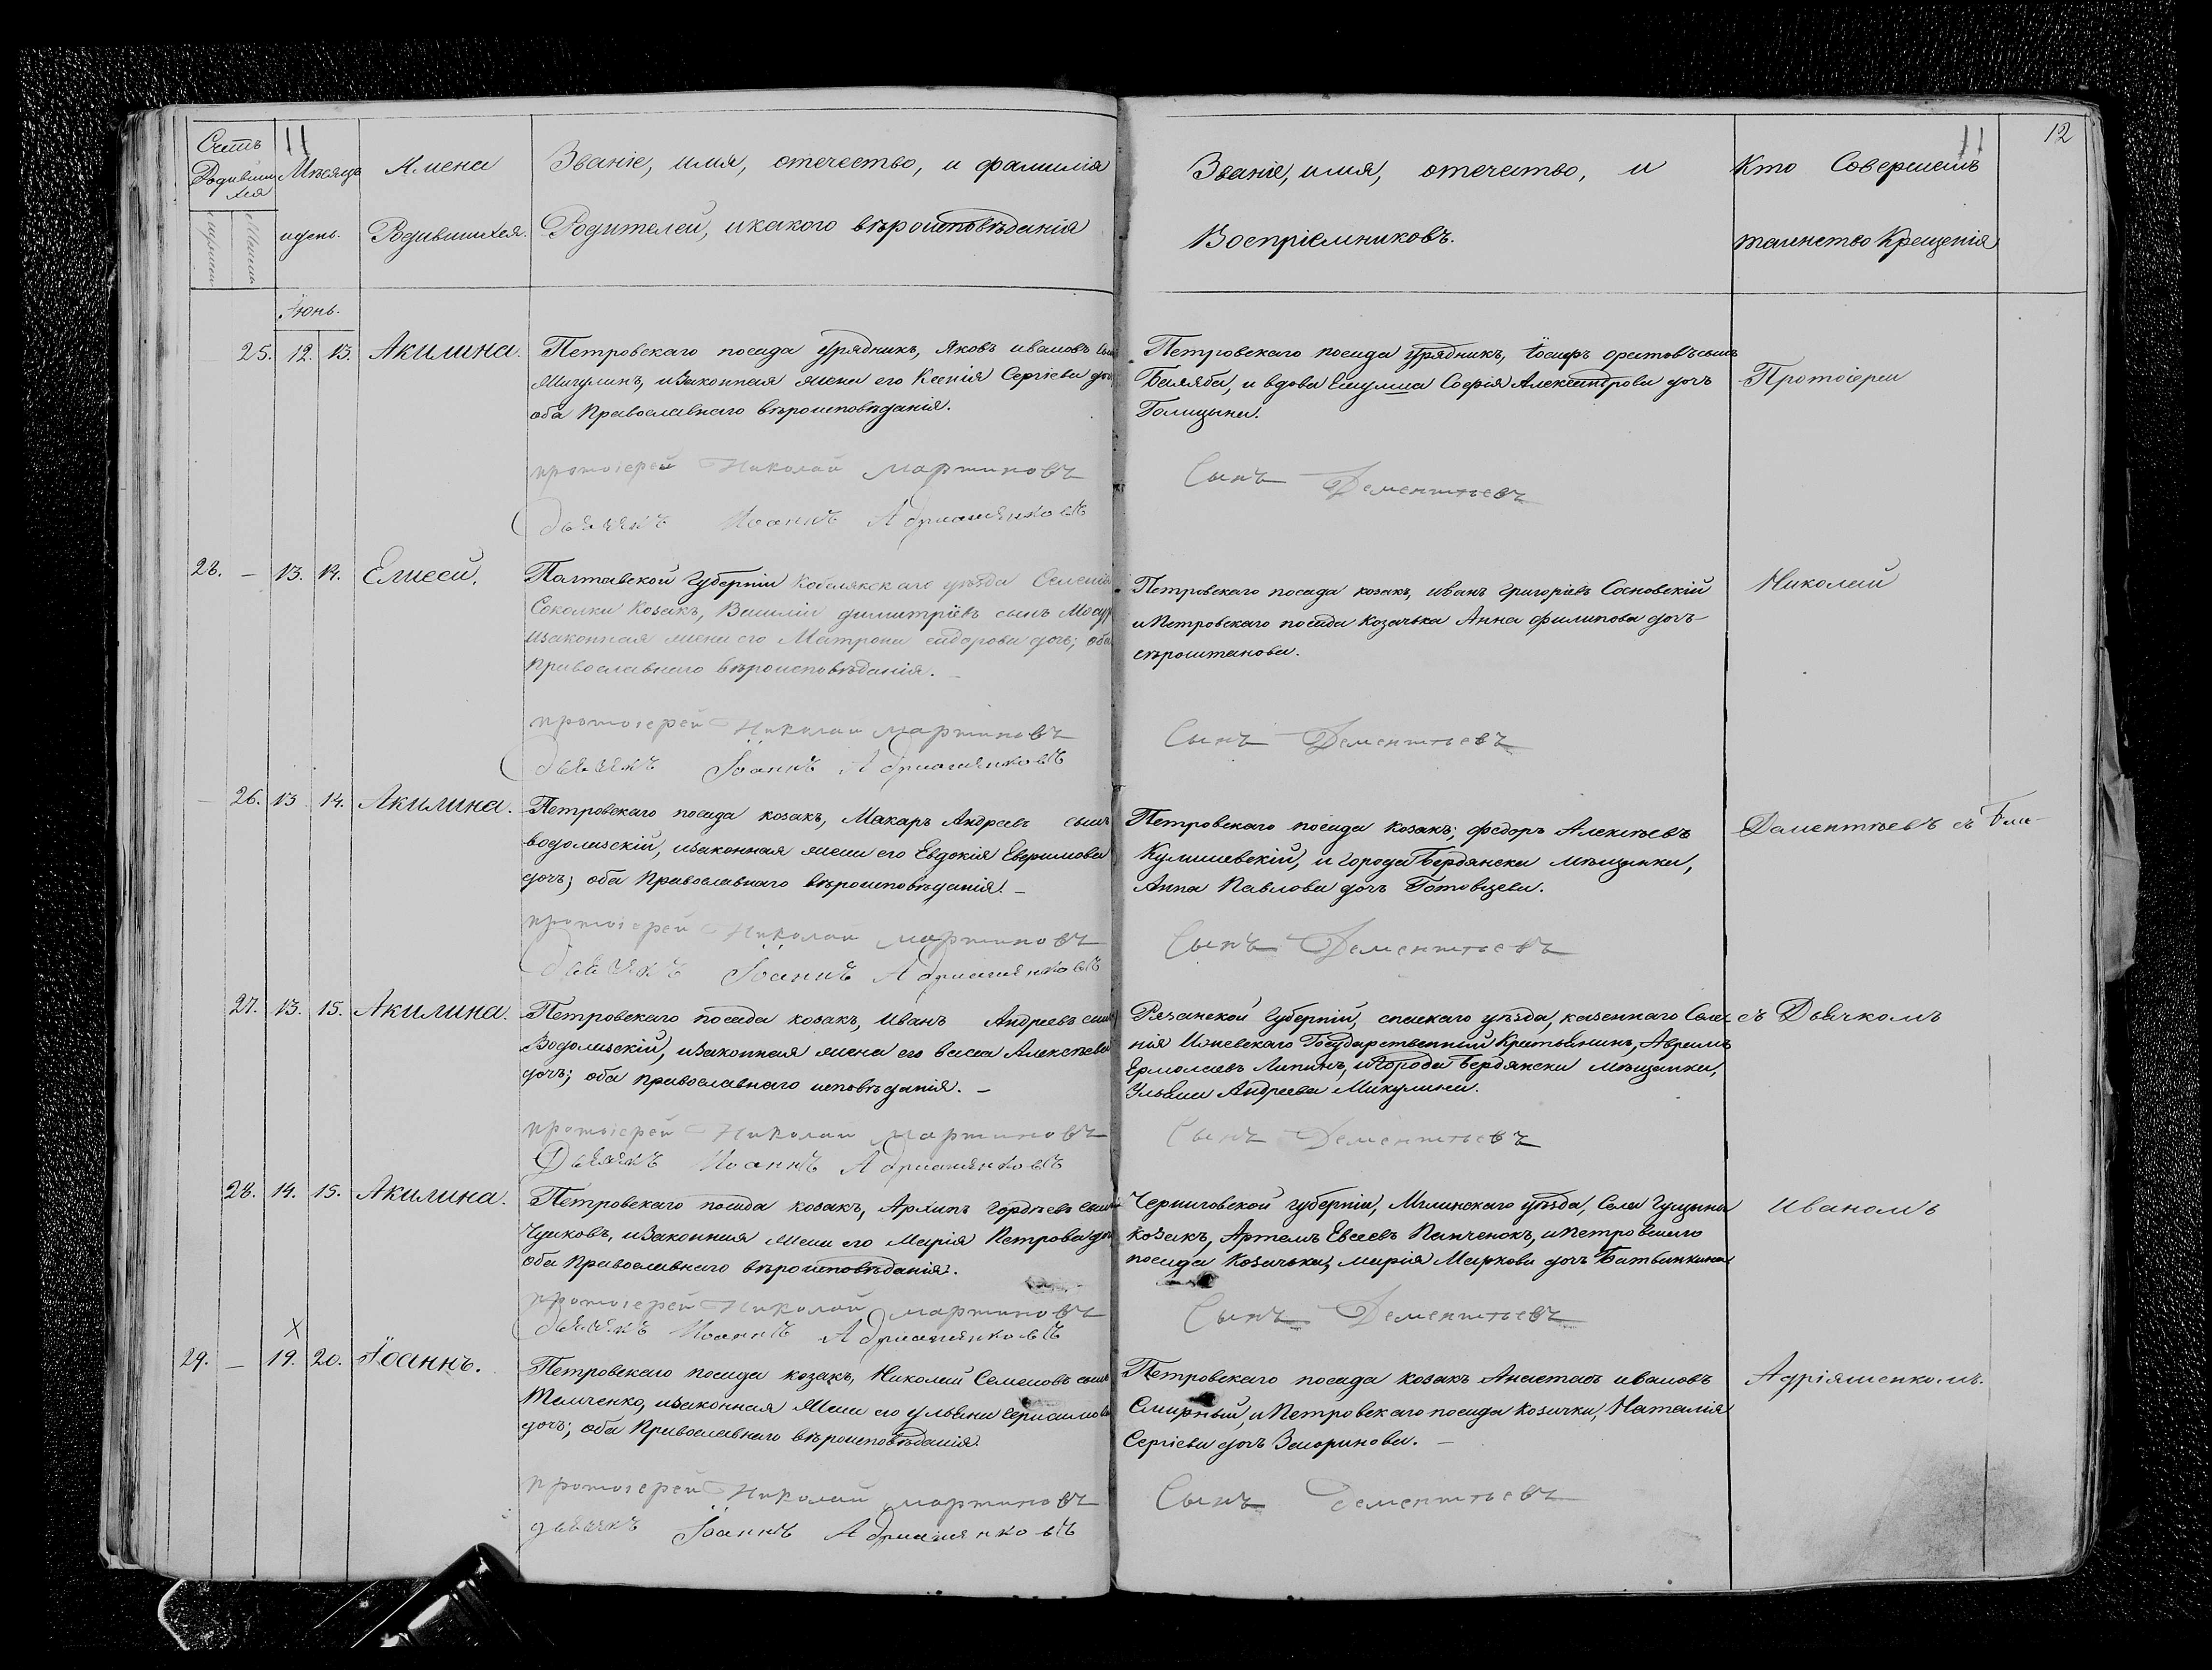 Счетъ
Родивши
хся
11
Мѣсяцъ
Имена
Званіе, имя, отечество, и фамилія
Родителей, икакого вѣроисповѣданія
иденъ.
Родившихся.
Званіе, имя, отечество, и
Воспріемниковъ.
Кто Совершалъ
таинство Крещенія
11
12
Іюнь.
25. 12. 13. Акилина.
Петровскаго посада урядникъ, Яковъ ивановъ сынъ
Мигулинъ, изаконная жена его Ксенія Сергіева дочь
оба Православнаго вѣроисповѣданія.
Петровскаго посада урядникъ, іосифъ сынъ
Баляба, и вдова Софія Александрова дочь
Голицына.
Протоіереи
протоіерей Николай мартиновъ
Сынъ Дементьевъ
дьячекъ Иоаннъ Адриашенковъ
28. – 13. 14. Елисей.
Полтавской Губерніи Кобелякскаго уѣзда Селенія
Соколки Козакъ, Василій димитріевъ сынъ
изаконная жена его Матрона сидорова дочь; оба
Православнаго вѣроисповѣданія. –
Петровскаго посада козакъ, иванъ григоріевъ Сосновскій
и Петровскаго посада Козачька Анна филипова дочь-
Николай
протоіерей Николай мартиновъ
Сынъ Дементьевъ
дьячекъ Іоаннъ Адриашенковъ
– 26. 13 14. Акилина.
Петровскаго посада козакъ, Макаръ Андреевъ сынъ
водолазскій, изаконная жена его Евдокія Ефримова
дочь; оба Православнаго вѣроисповѣданія. –
Петровскаго посада Козакъ; федоръ Алексѣевъ
Кулишевскій, и города Бердянска мѣщанка,
Анна Павлова дочь Готовцева.
Дементьевъ съ
протоіерей Николай мартиновъ
Сынъ Дементьевъ
дьячекъ Іоаннъ Адриашенковъ
27. 13. 15. Акилина.
Петровскаго посада козакъ, Иванъ Андреевъ сынъ
Водолазскій, изаконная жена его васса Алексѣева
дочь; оба православнаго исповѣданія. –
Рязанской Губерніи, спаскаго уѣзда, казеннаго Селе-
нія Ижевскаго Государственный Крѣстьянинъ, Аврамъ
Ермолаевъ Липинъ, игорода Бердянска мѣщанка,
Ульяна Андреева Микулина.
съ Дьячкомъ
протоіерей Николай мартиновъ
Сынъ Дементьевъ
Дьячекъ Иоаннъ Адриашенковъ
28. 14. 15. Акилина.
Петровскаго посада козакъ, Архипъ гордѣевъ сынъ
Чушковъ, изаконная жена его Марія Петрова дочь
оба Православнаго вѣроисповѣданія.
Черниговской губерніи, Мглинскаго уѣзда, Села
козакъ, Артемъ Евсеевъ Панченокъ, ипетровскаго
посада Козачька, марія Маркова дочь
Иваномъ
протоіерей Николай мартиновъ
Сынъ Дементьевъ
дьячекъ Иоаннъ Адриашенковъ
X
29. – 19. 20. Іоаннъ.
Петровскаго посада козакъ, Николай Семеновъ сынъ
Темченко, изаконная жена его ульяна
дочь; оба Православнаго вѣроисповѣданія.
Петровскаго посада козакъ Анастасъ ивановъ
Смирный, и Петровскаго посада Козачка, Наталія
Сергіева дочь –
Адріяшенкомъ.
протоіерей Николай мартиновъ
Сынъ Дементьевъ
дьячекъ Іоаннъ Адриашенковъ